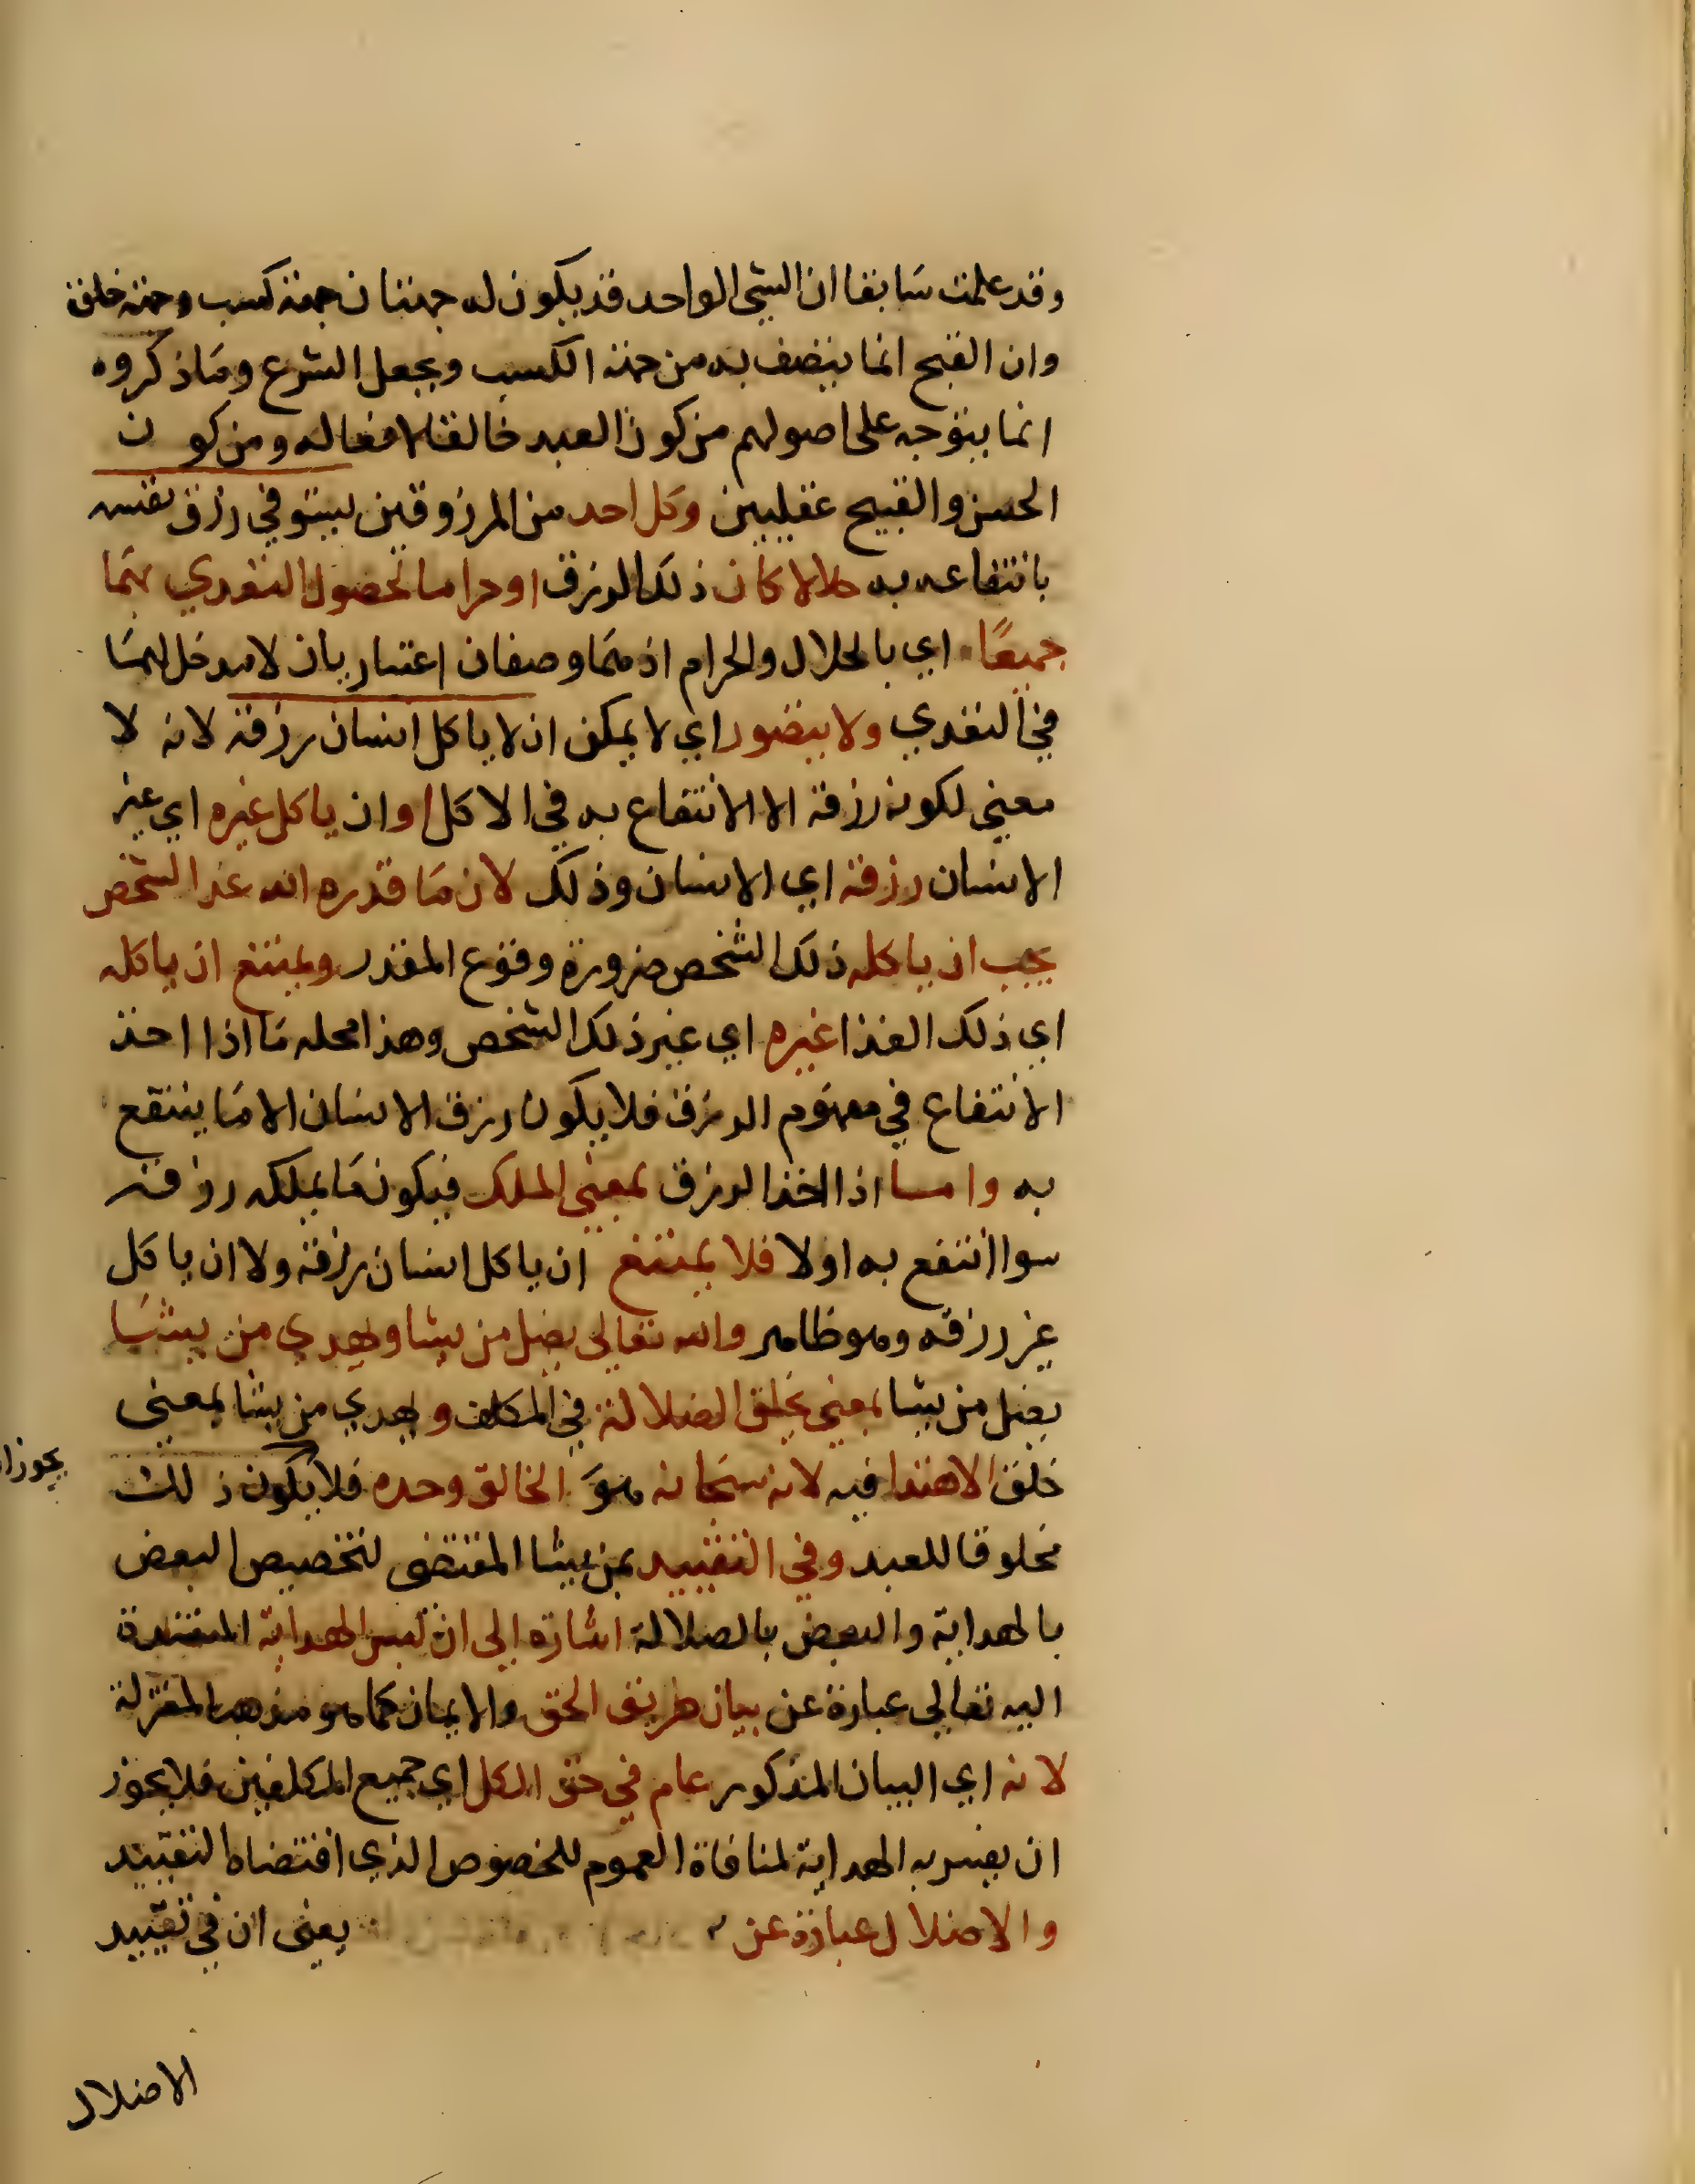 وقد علمت سابقا ان الشي الواحد قد يكون له جهتان جهة كسب وجهة خلق
وان القبح انما يتصف به من جهة الكسب وبجعل الشرع وما ذكروه
انما يتوجه على اصولهم من كون العبد خالقا لافعاله ومن كون
الحسن والقبيح عقليين وكل احد من المرزوقين يستوفي رزق نفسه
بانتفاعه به حلالا كان ذلك الرزق او حراما لحصول التغذي بهما
جميعا اي بالحلال والحرام اذ هما وصفان اعتباريان لا مدخل لهما
في التغذي ولا يتصور اي لا يمكن ان لا ياكل انسان رزقه لانه لا
معنى لكونه رزقه الا الانتفاع به في الاكل او ان ياكل غيره اي غير
الانسان رزقه اي الانسان وذلك لان ما قدره الله غذا الشخص
يجب ان ياكله ذلك الشخص ضرورة وقوع المقدر ويمتنع ان ياكله
اي ذلك الغذا غيره اي غير ذلك الشخص وهذا محله ما اذا اخذ
الانتفاع في مفهوم الرزق فلا يكون رزق الانسان الا ما ينتفع
به واما اذا اخذ الرزق بمعنى الملك فيكون ما يملكه رزقه
سوا انتفع به اولا فلا يمتنع ان ياكل انسان رزقه ولا ان ياكل
غير رزقه وهو ظاهر والله تعالى يضل من يشا ويهدي من يشا
يضل من يشا بمعنى يخلق الضلالة في المكلف ويهدي من يشا بمعنى
خلق الاهتدا فيه لانه سبحانه هو الخالق وحده فلا يكون ذلك
يجوز ا
مخلوقا للعبد وفي التقييد بمن يشا المقتضى لتخصيص البعض
بالهداية والبعض بالضلالة اشارة الى ان ليس الهداية المستندة
اليه تعالى عبارة عن بيان طريق الحق والايمان كما هو مذهب المعتزلة
لانه اي البيان المذكور عام في حق الكل اي جميع المكلفين فلا يجوز
ان يفسر به الهداية لمنافاة العموم للخصوص الذي اقتضاه التقييد
والاضلال عبارة عن يعنى ان في تقييد
الاضلال